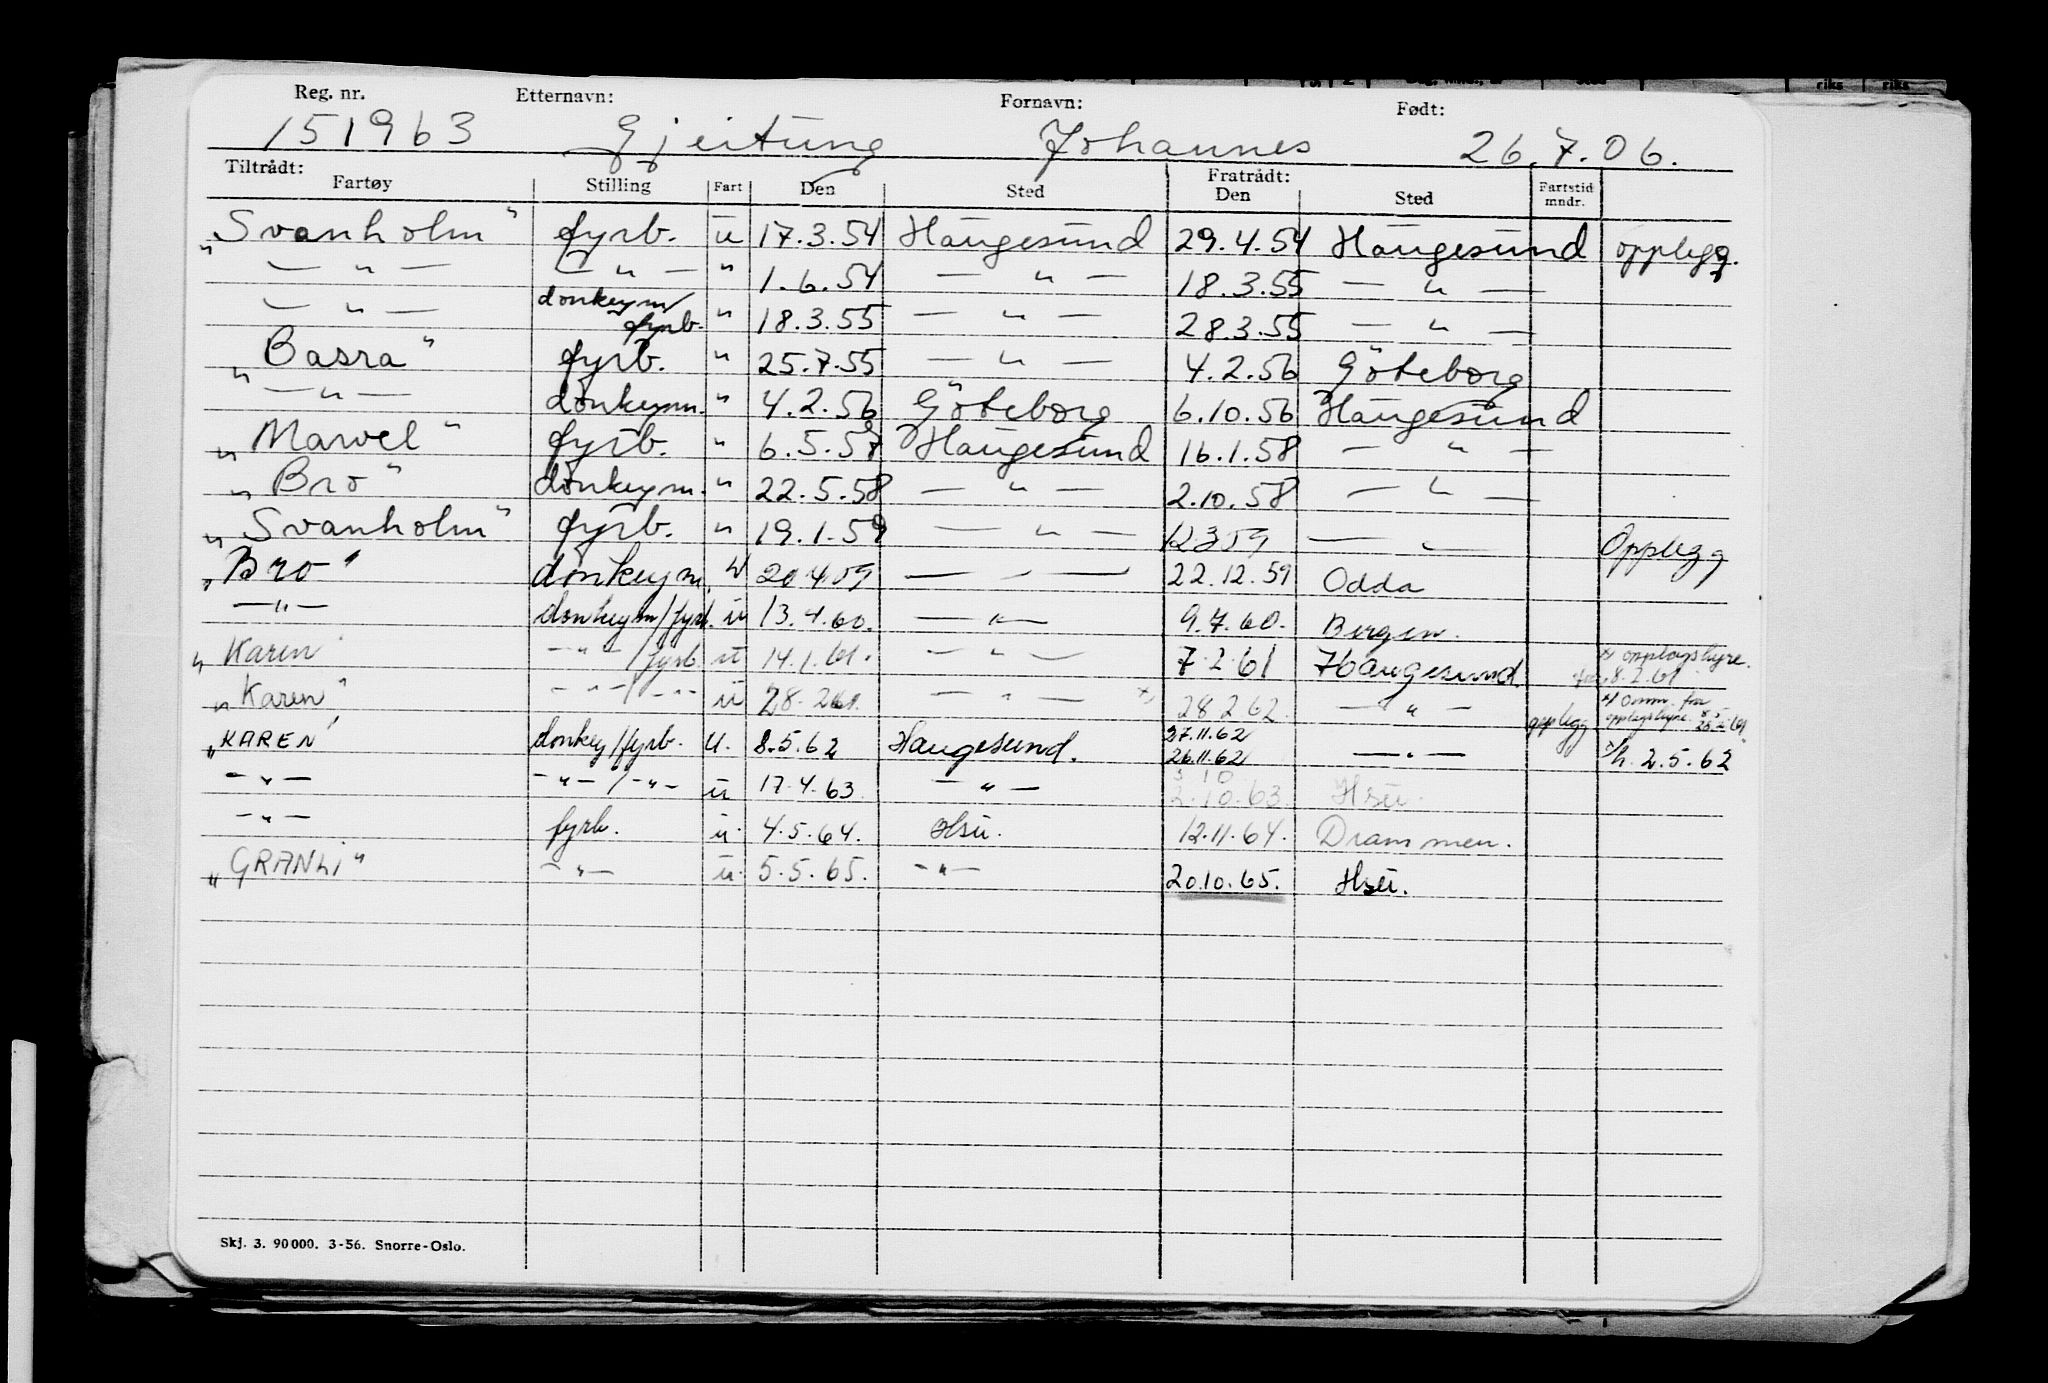 Reg. nr. Etternavn: Fornavn: Født:
151963 Gjeitung Johannes 26.7.06.
Tiltrådt: Fratrådt:
Fartøy Stilling Fart Den Sted Den Sted Fartstid mndr.
"Svanholm" fyrb. u 17.3.54 Haugesund 29.4.54 Haugesund opplegg.
— " — — " — " 1.6.54 — " — 18.3.55 — " —
— " — donkeym/fyrb. " 18.3.55 — " — 28.3.55 — " —
"Basra" fyrb. " 25.7.55 — " — 4.2.56 Göteborg
— " — donkeym. " 4.2.56 Göteborg 6.10.56 Haugesund
"Marvel" fyrb. " 6.5.57 Haugesund 16.1.58 — " —
"Bro" donkeym. " 22.5.58 — " — 2.10.58 — " —
"Svanholm" fyrb. " 19.1.59 — " — 12.3.59 — " — Opplegg
"Bro" donkeym. u 20.4.59 — " — 22.12.59 Odda
— " — donkeym/fyrb. u 13.4.60. — " — 9.7.60. Bergen.
"Karen — " — /fyrb. u 14.1.61. — " — 7.2.61 Haugesund. x) opplagshyre. fra 8.2.61
"Karen" — " — / — " — u 28.2.61. — " — x) 28.2.62. — " — opplegg x) Omm. fra opplagshyre.
"KAREN" donkey/fyrb. u. 8.5.62 Haugesund. 27.11.62 26.11.62 — " — 2.5.62
— " — — " — / — " — u 17.4.63 — " — 2.10.63. Hsu.
— " — fyrb. u. 4.5.64. Hsu. 12.11.64. Drammen.
"GRANLi" — " — u. 5.5.65. — " — 20.10.65. Hsu.
Skj. 3. 90000. 3-56. Snorre-Oslo.